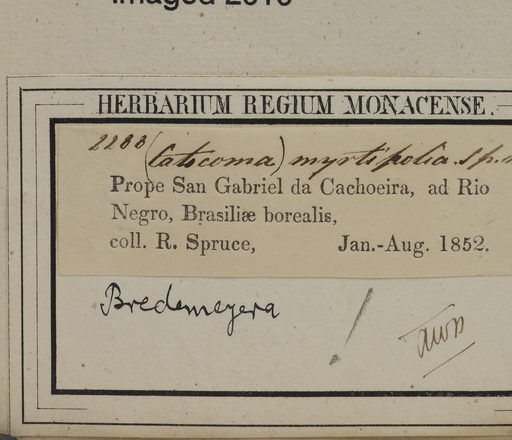 Imaged 2016
HERBARIUM REGIUM MONACENSE.
2233 (Catocoma) myrtifolia. sp.
Prope San Gabriel da Cachoeira, ad Rio
Negro, Brasiliæ borealis,
coll. R. Spruce, Jan.-Aug. 1852.
Bredemeyera !